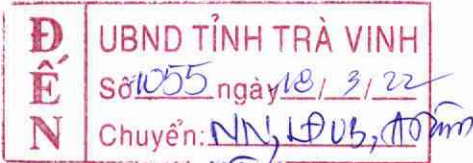 ĐẾN
UBND TỈNH TRÀ VINH
Số 1055 ngày 18/3/22
Chuyển: NN, LĐUB,